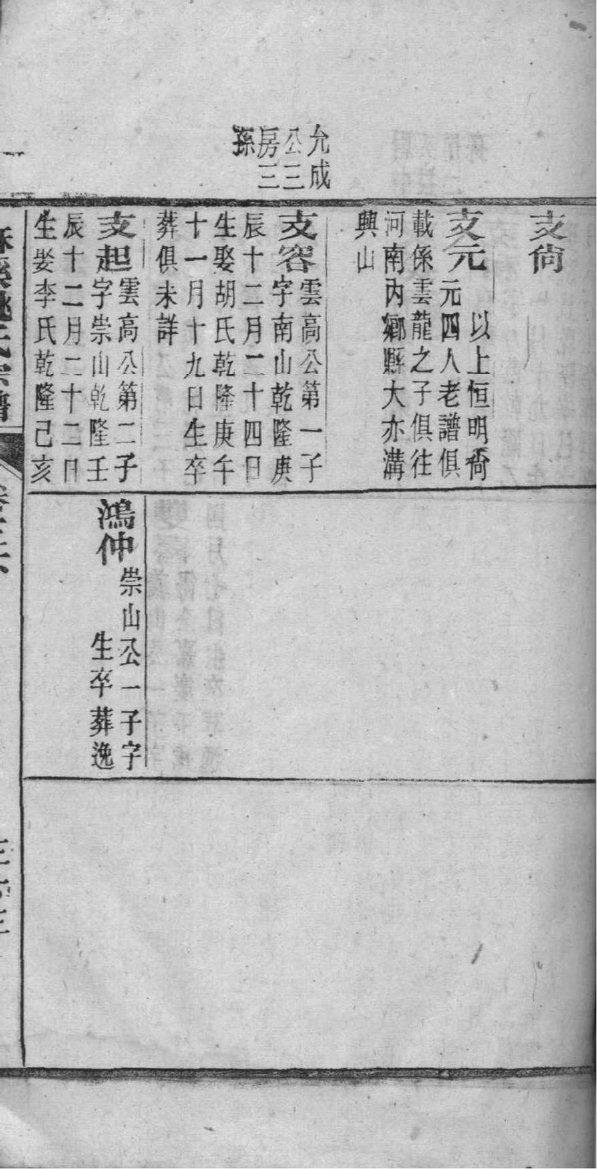 允成
公三
房三
孫
支尙
支元
以上恒明奇
元四人老譜俱
載係雲龍之子俱往
河南內鄉縣大亦溝
興山
支容
雲高公第一子
字南山乾隆庚
辰十二月二十四日
生娶胡氏乾隆庚午
十一月十九日生卒
葬俱未詳
支起
雲高公第二子
字崇山乾隆壬
辰十二月二十二日
生娶李氏乾隆己亥
鴻仲
崇山公一子字
生卒葬逸
氏宗譜